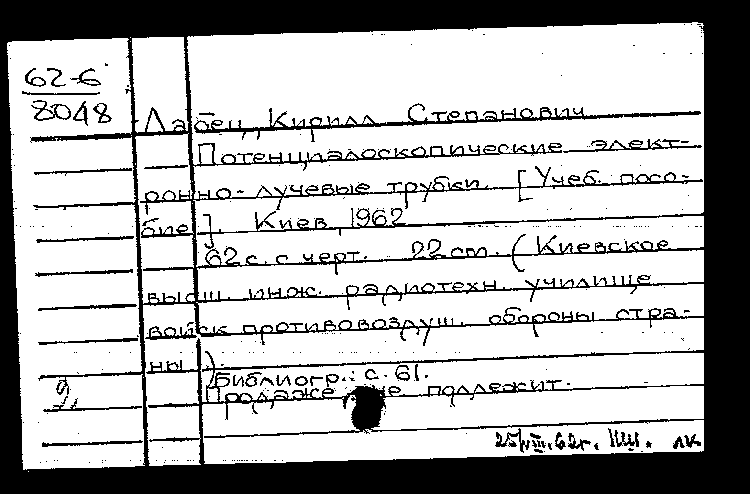 62-6
8048
Лабец, Кирилл Степанович
Потенциалоскопические элект-
ронно-лучевые трубки. [Учеб. посо-
бие]. Киев, 1962
62 с. с черт. 22 см. (Киевское
высш. инж. радиотехн. училище
войск противовоздуш. обороны стра-
ны).
Библиогр.: с. 61.
Продаже не подлежит.
25/VIII.62г. ЛК